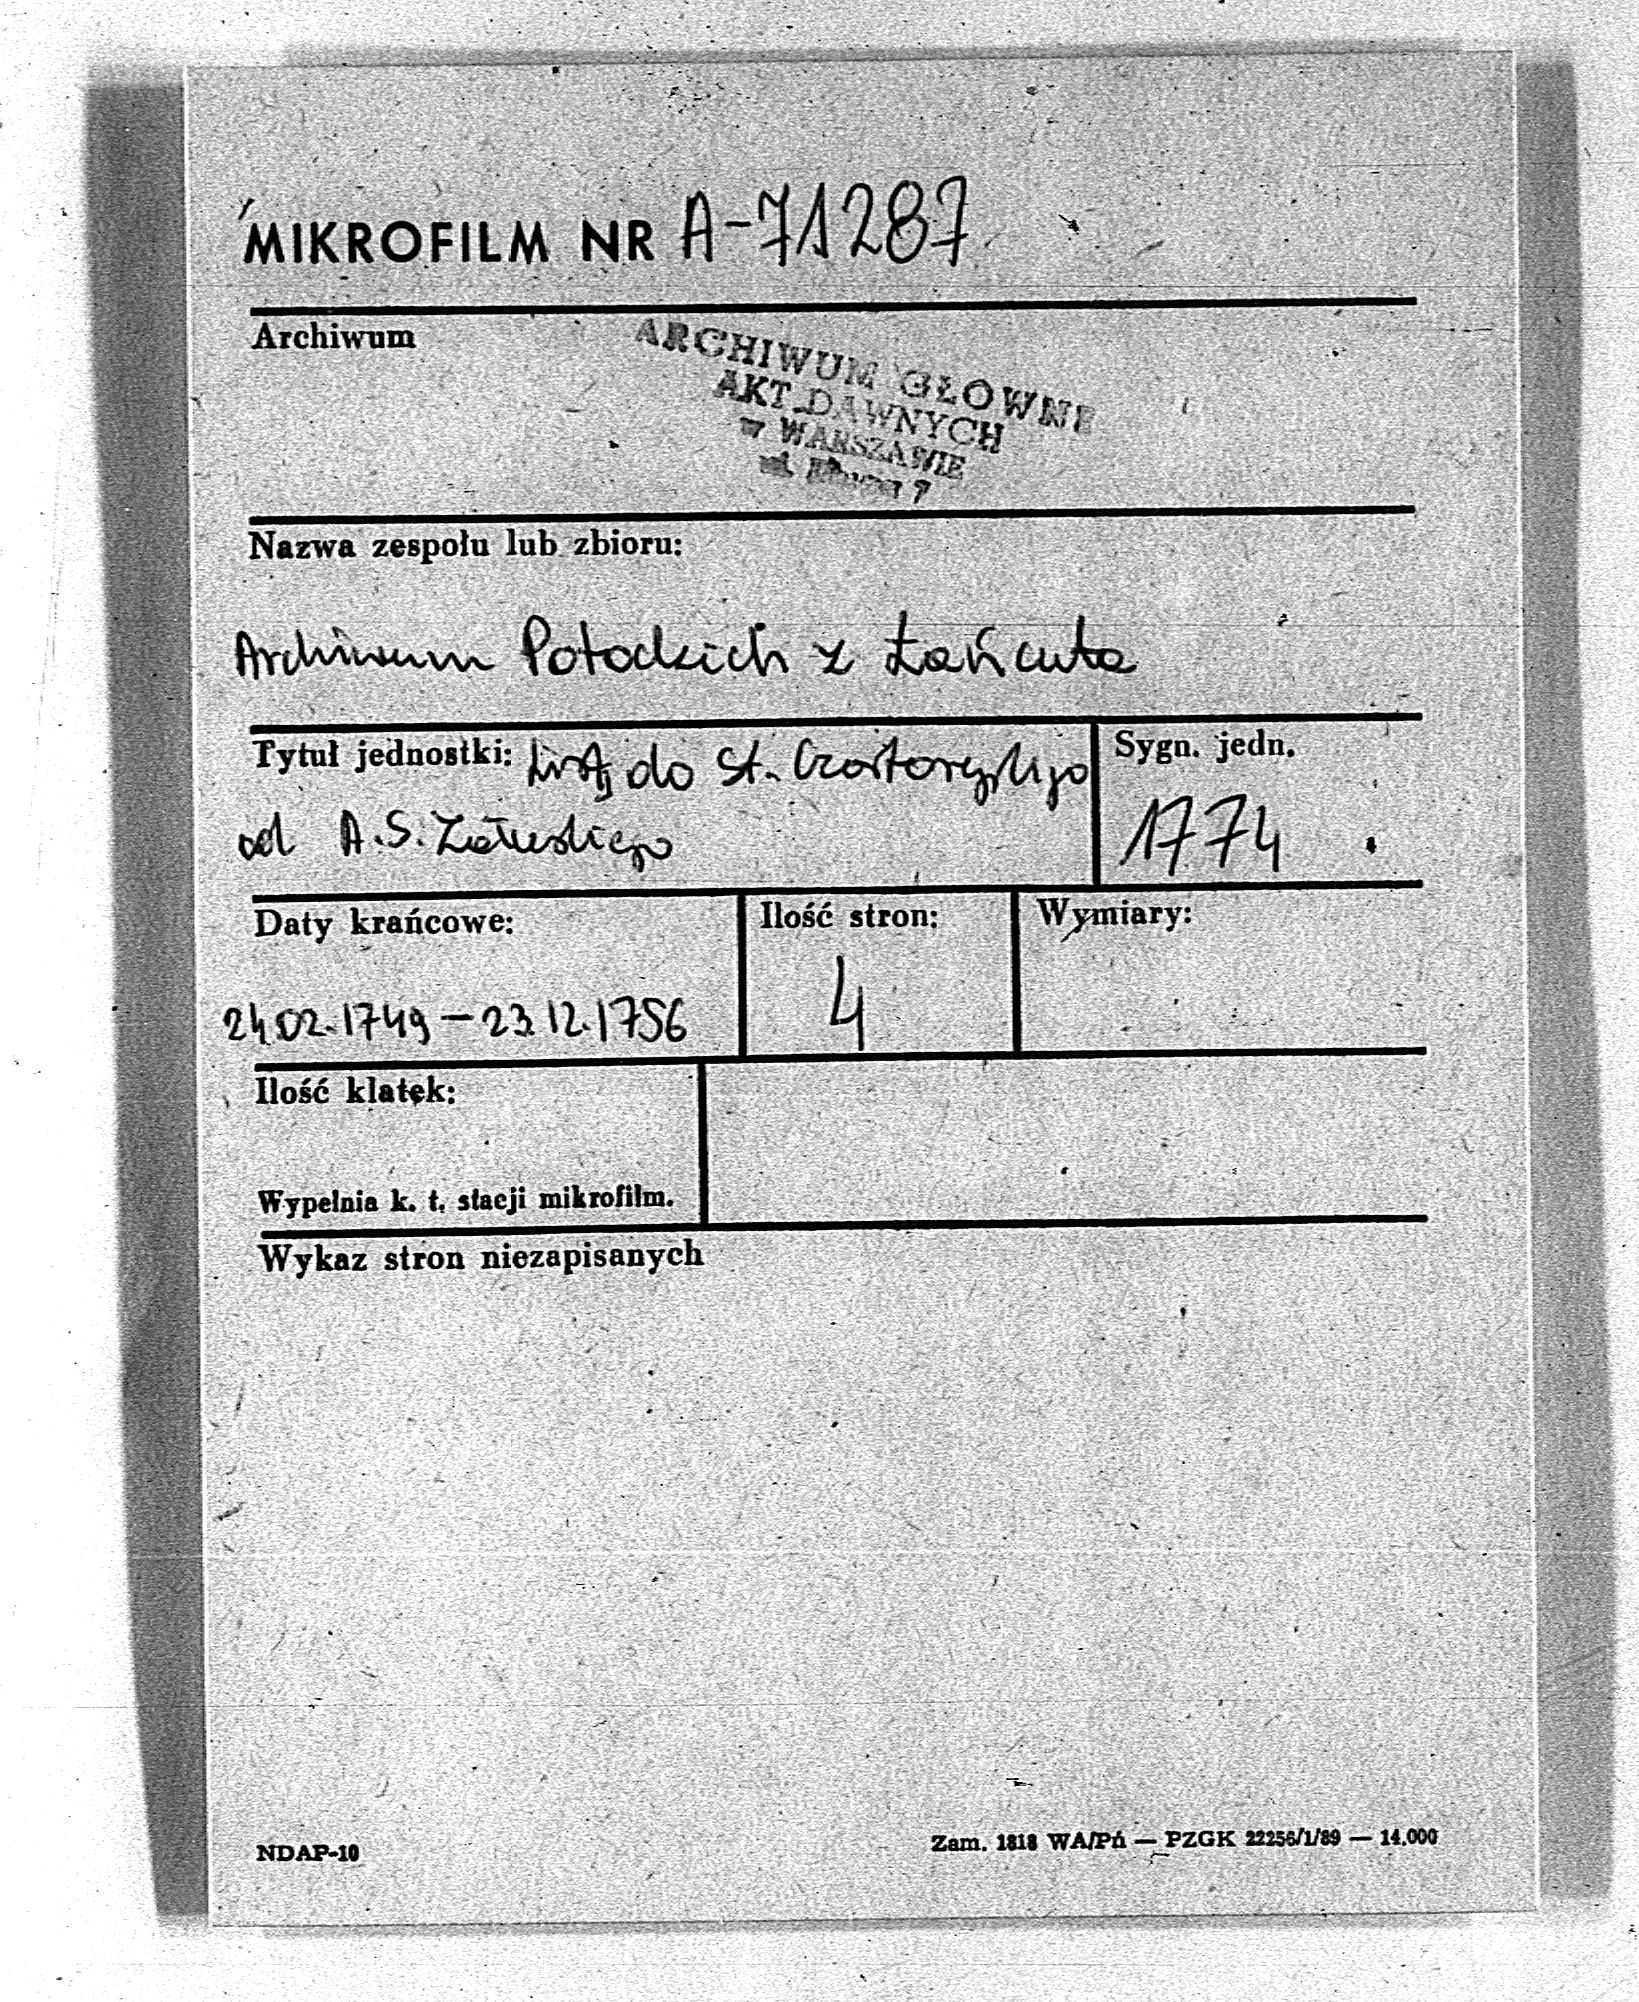 MIKROFILM NR A-71287
Archiwum
ARCHIWUM GŁOWNE
AKT DAWNYCH
w WARSZAWIE
ul. Długa 7
Nazwa zespołu lub zbioru:
Archiwum Potockich z Łańcuta
Tytuł jednostki: Listy do St. Czartoryskiego
od A.S. Załuskiego
Sygn. jedn.
1774
Daty krańcowe:
24.02.1749 – 23.12.1756
Ilość stron:
4
Wymiary:
Ilość klatek:
Wypełnia k. t. stacji mikrofilm.
Wykaz stron niezapisanych
NDAP-10
Zam. 1818 WA/Pń — PZGK 22256/1/89 — 14.000